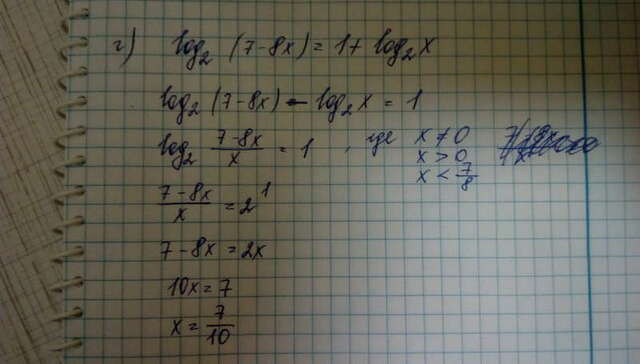 г) log₂ (7-8x) = 1 + log₂x
log₂ (7-8x) - log₂x = 1
log₂ (7-8x)/x = 1, где x ≠ 0
x > 0
x < 7/8
(7-8x)/x = 2¹
7-8x = 2x
10x = 7
x = 7/10